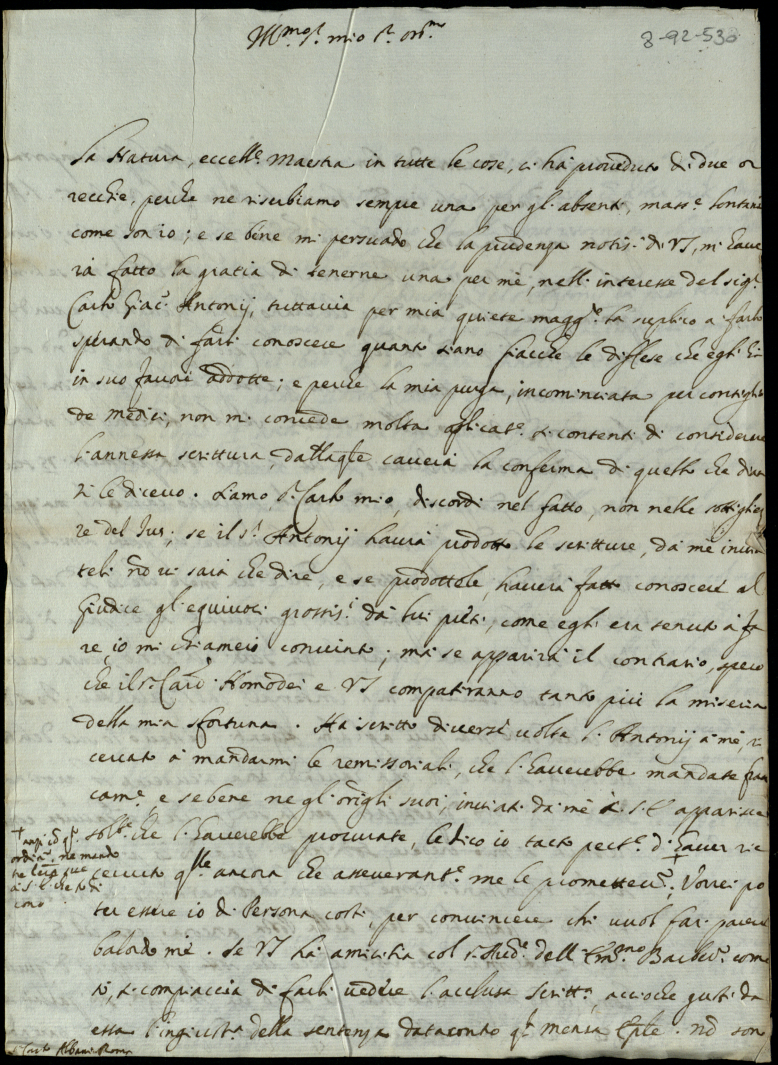 Ill.mo S.r mio S.r oss.mo
8-92-530
La Natura, eccell.e Maestra in tutte le cose, ci hà proveduto di due o
recchie, perche ne riserbiamo sempre una per gl'absenti, mass.e lontani
come son io; e se bene mi persuado che la prudenza notis.a di VS, mi have
rà fatto la gratia di tenerne una per mè, nell'interesse del sig.r
Carlo Giac.o Antonij, tuttavia per mia quiete magg.re la suplico a farlo
sperando di farli conoscere quanto siano fiacche le diffese che egli hà
in suo favor addotte; e perche la mia purga, incominciata per consiglio
de medici, non mi concede molta aplicat.e si contenti di considerare
l'annessa scrittura, dalla q.le caverà la conferma di quello che
le dicevo. Siamo, S.r Carlo mio, discordi nel fatto, non nelle sottigliez
ze del Jus; se il S.r Antonij haverà prodotto le scritture, da mè invia
teli nō vi sarà che dire, e se prodottole, haverà fatto conoscere al
Giudice gl'equivoci grossis.i dà lui presi, come egli era tenuto à fa
re, io mi chiamerò convinto; mà se apparirà il contrario, spero
che il S.r Card. Homodei e VS compatiranno tanto più la miseria
della mia sfortuna. Hà scritto diverse volte l'Antonij à mè, ri
cercato à mandarmi le remissoriali, che l'haverebbe mandate fran
came.e, e se bene negl'orig.li suoi, inviati da mè à S.E. apparisce
solo che l'haverebbe procurate, le dico io tacto pect.e d'haver ri
cevuto q.lle ancora che asseverant.e me le prometteva, Vorrei po
ter essere io di Persona costì, per convincere chi vuol far parere
balordo mè. Se VS hà amicitia col S.r Aud.e dell'Em.mo
si compiaccia di farli vedere l'acclusa scritt.a, acciòche gusti da
essa l'ingiust.a della sentenza nō son
ordin.
S.r Carlo Albani Roma